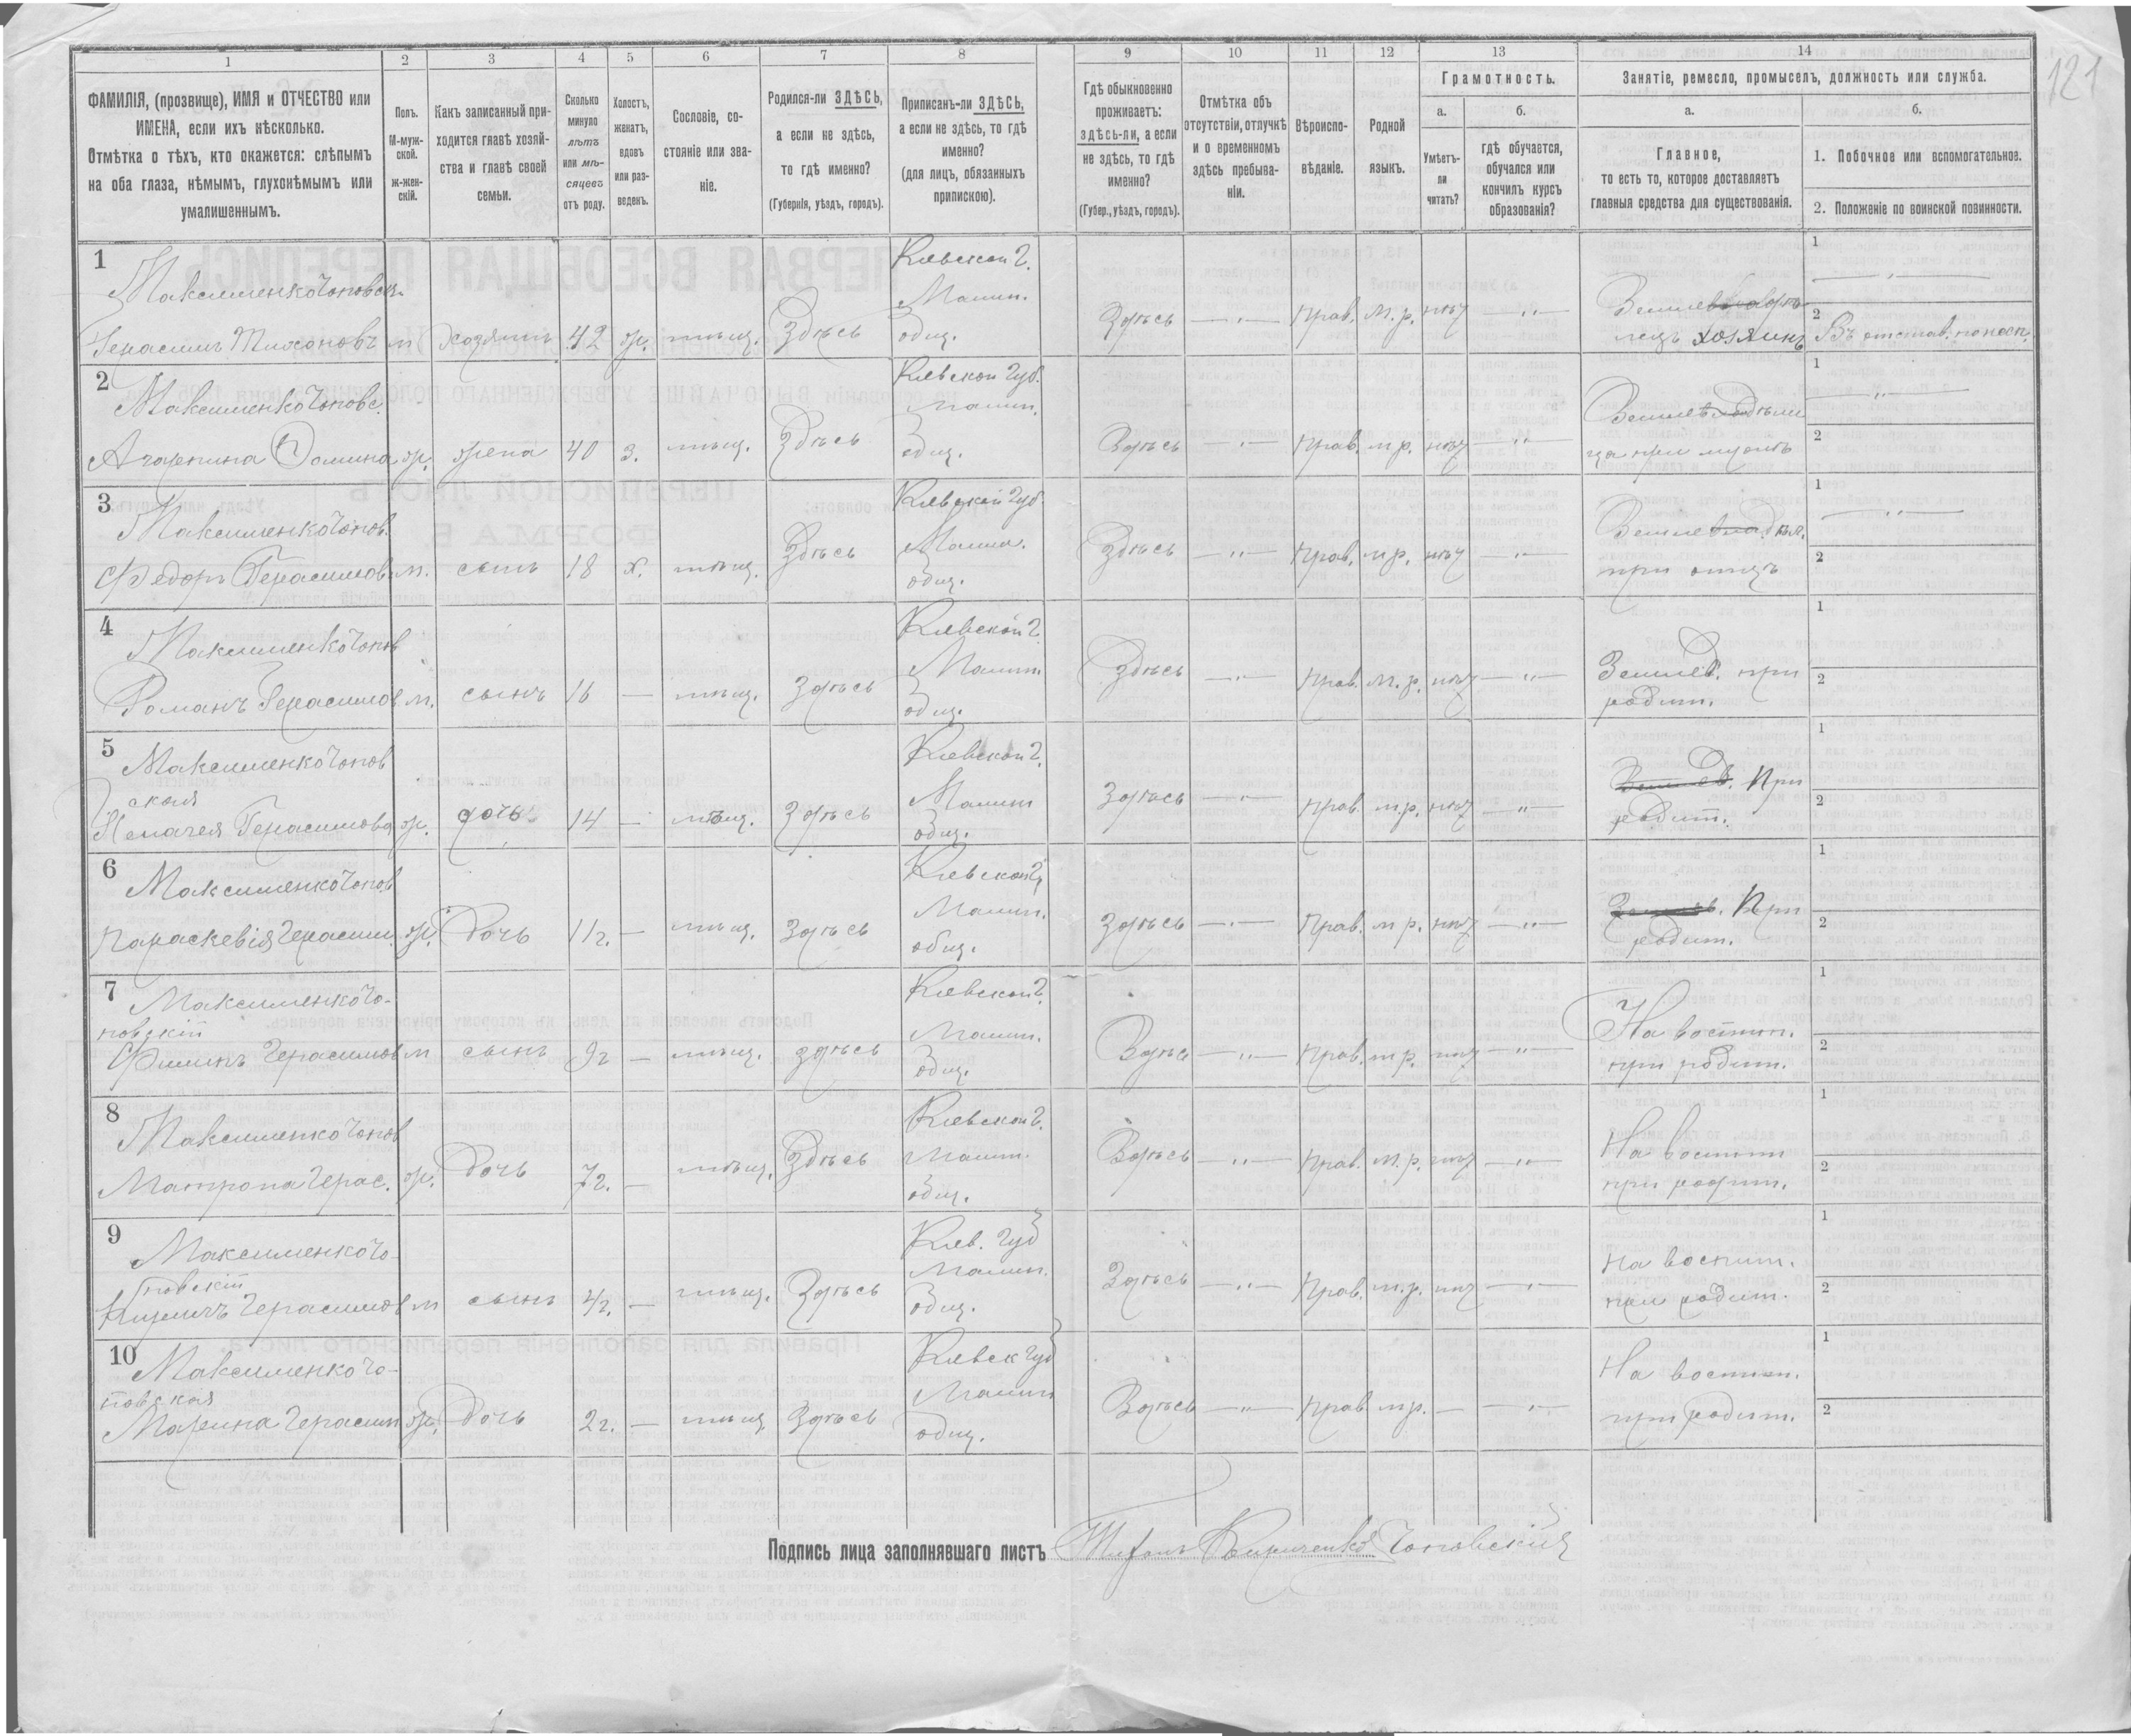 121
1 2 3 4 5 6 7 8 9 10 11 12 13 14
ФАМИЛІЯ, (прозвище), ИМЯ и ОТЧЕСТВО или
ИМЕНА, если ихъ нѣсколько.
Отмѣтка о тѣхъ, кто окажется: слѣпымъ
на оба глаза, нѣмымъ, глухонѣмымъ или
умалишеннымъ.
Полъ.
М-муж-
ской.
ж-жен-
скій.
Какъ записанный при-
ходится главѣ хозяй-
ства и главѣ своей
семьи.
Сколько
минуло
лѣтъ
или мѣ-
сяцевъ
отъ роду.
Холостъ,
женатъ,
вдовъ
или раз-
веденъ.
Сословіе, со-
стояніе или зва-
ніе.
Родился-ли ЗДѢСЬ,
а если не здѣсь,
то гдѣ именно?
(Губернія, уѣздъ, городъ).
Приписанъ-ли ЗДѢСЬ,
а если не здѣсь, то гдѣ
именно?
(для лицъ, обязанныхъ
припискою).
Гдѣ обыкновенно
проживаетъ:
здѣсь-ли, а если
не здѣсь, то гдѣ
именно?
(Губер., уѣздъ, городъ).
Отмѣтка объ
отсутствіи, отлучкѣ
и о временномъ
здѣсь пребыва-
ніи.
Вѣроиспо-
вѣданіе.
Родной
языкъ.
Грамотность.
а.
Умѣетъ-
ли
читать?
б.
гдѣ обучается,
обучался или
кончилъ курсъ
образованія?
Занятіе, ремесло, промыселъ, должность или служба.
а.
Главное,
то есть то, которое доставляетъ
главныя средства для существованія.
б.
1. Побочное или вспомогательное.
2. Положеніе по воинской повинности.
1
Максименко Чоповск.
Герасимъ Тихоновъ м хозяинъ 42 ж. мѣщ. Здѣсь
Кіевской г.
Малин.
общ.
Здѣсь — „ — Прав. м. р. нѣт — „ —
хозяинъ
1 — „ —
2 Въ отстав.
2
Максименко Чоповс.
Ж. жена 40 З. мѣщ. Здѣсь
Кіевской губ.
Малин.
общ.
Здѣсь — „ — Прав. м р. нѣт — „ —
при мужѣ
1 — „ —
2
3
Максименко Чопов.
Федоръ Герасимов. м. сынъ 18 х. мѣщ. Здѣсь
Кіевской Губ.
Малин.
общ.
Здѣсь — „ — Прав. м р. нѣт — „ —
при отцѣ
1 — „ —
2
4
Максименко Чопов
Романъ Герасимов м. сынъ 16 — мѣщ. Здѣсь
Кіевской г.
Малин.
общ.
Здѣсь — „ — Прав. м. р. нѣт — „ —
Землед. при
родит.
1
2
5
Максименко Чопов
ская
Герасимова ж. дочь 14 — мѣщ. Здѣсь
Кіевской г.
Малин
общ.
Здѣсь — „ — Прав. м. р. нѣт — „ —
Землед. При
родит.
1
2
6
Максименко Чопов
Параскевія Герасим. ж. Дочь 11 г. — мѣщ. Здѣсь
Кіевской г.
Малин.
общ.
Здѣсь — „ — Прав. м р. нѣт — „ —
Землед. При
родит.
1
2
7
Максименко Чо-
повскій
Герасимов м сынъ 9 г — мѣщ. здѣсь
Кіевской г.
Малин.
общ.
Здѣсь — „ — Прав. м р. нѣт — „ —
На воспит.
при родит.
1
2
8
Максименко Чопов
Матрона Герас. ж. Дочь 7 г. — мѣщ. Здѣсь
Кіевской г.
Малин.
общ.
Здѣсь — „ — Прав. м. р. нѣт — „ —
На воспит
при родит.
1
2
9
Максименко Чо-
повскій
Герасимов м сынъ 4 г. — мѣщ. Здѣсь
Кіев. губ
Малин.
общ.
Здѣсь — „ — Прав. м. р. нѣт — „ —
На воспит.
при родит.
1
2
10
Максименко Чо-
повская
Марина Герасим ж. Дочь 2 г. — мѣщ Здѣсь
Кіевск губ
Малин
общ.
Здѣсь — „ — Прав м р. — — „ —
На воспит.
при родит.
1
2
Подпись лица заполнявшаго листъ Кириченко Чоповскій